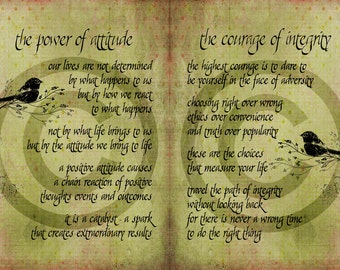 the power of attitude
our lives are not determined
by what happens to us
but by how we react
to what happens
not by what life brings to us
but by the attitude we bring to life
a positive attitude causes
a chain reaction of positive
thoughts events and outcomes
it is a catalyst - a spark
that creates extraordinary results
the courage of integrity
the highest courage is to dare to
be yourself in the face of adversity
choosing right over wrong
ethics over convenience
and truth over popularity
these are the choices
that measure your life
travel the path of integrity
without looking back
for there is never a wrong time
to do the right thing